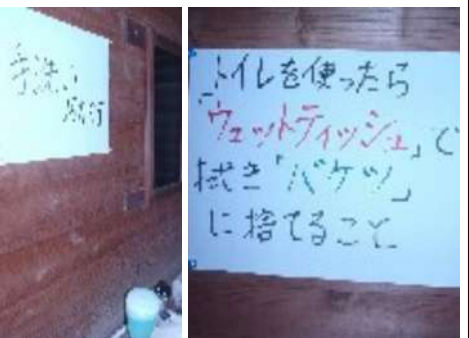 手洗い
励行
トイレを使ったら
「ウェットティッシュ」で
拭き「バケツ」
に捨てること